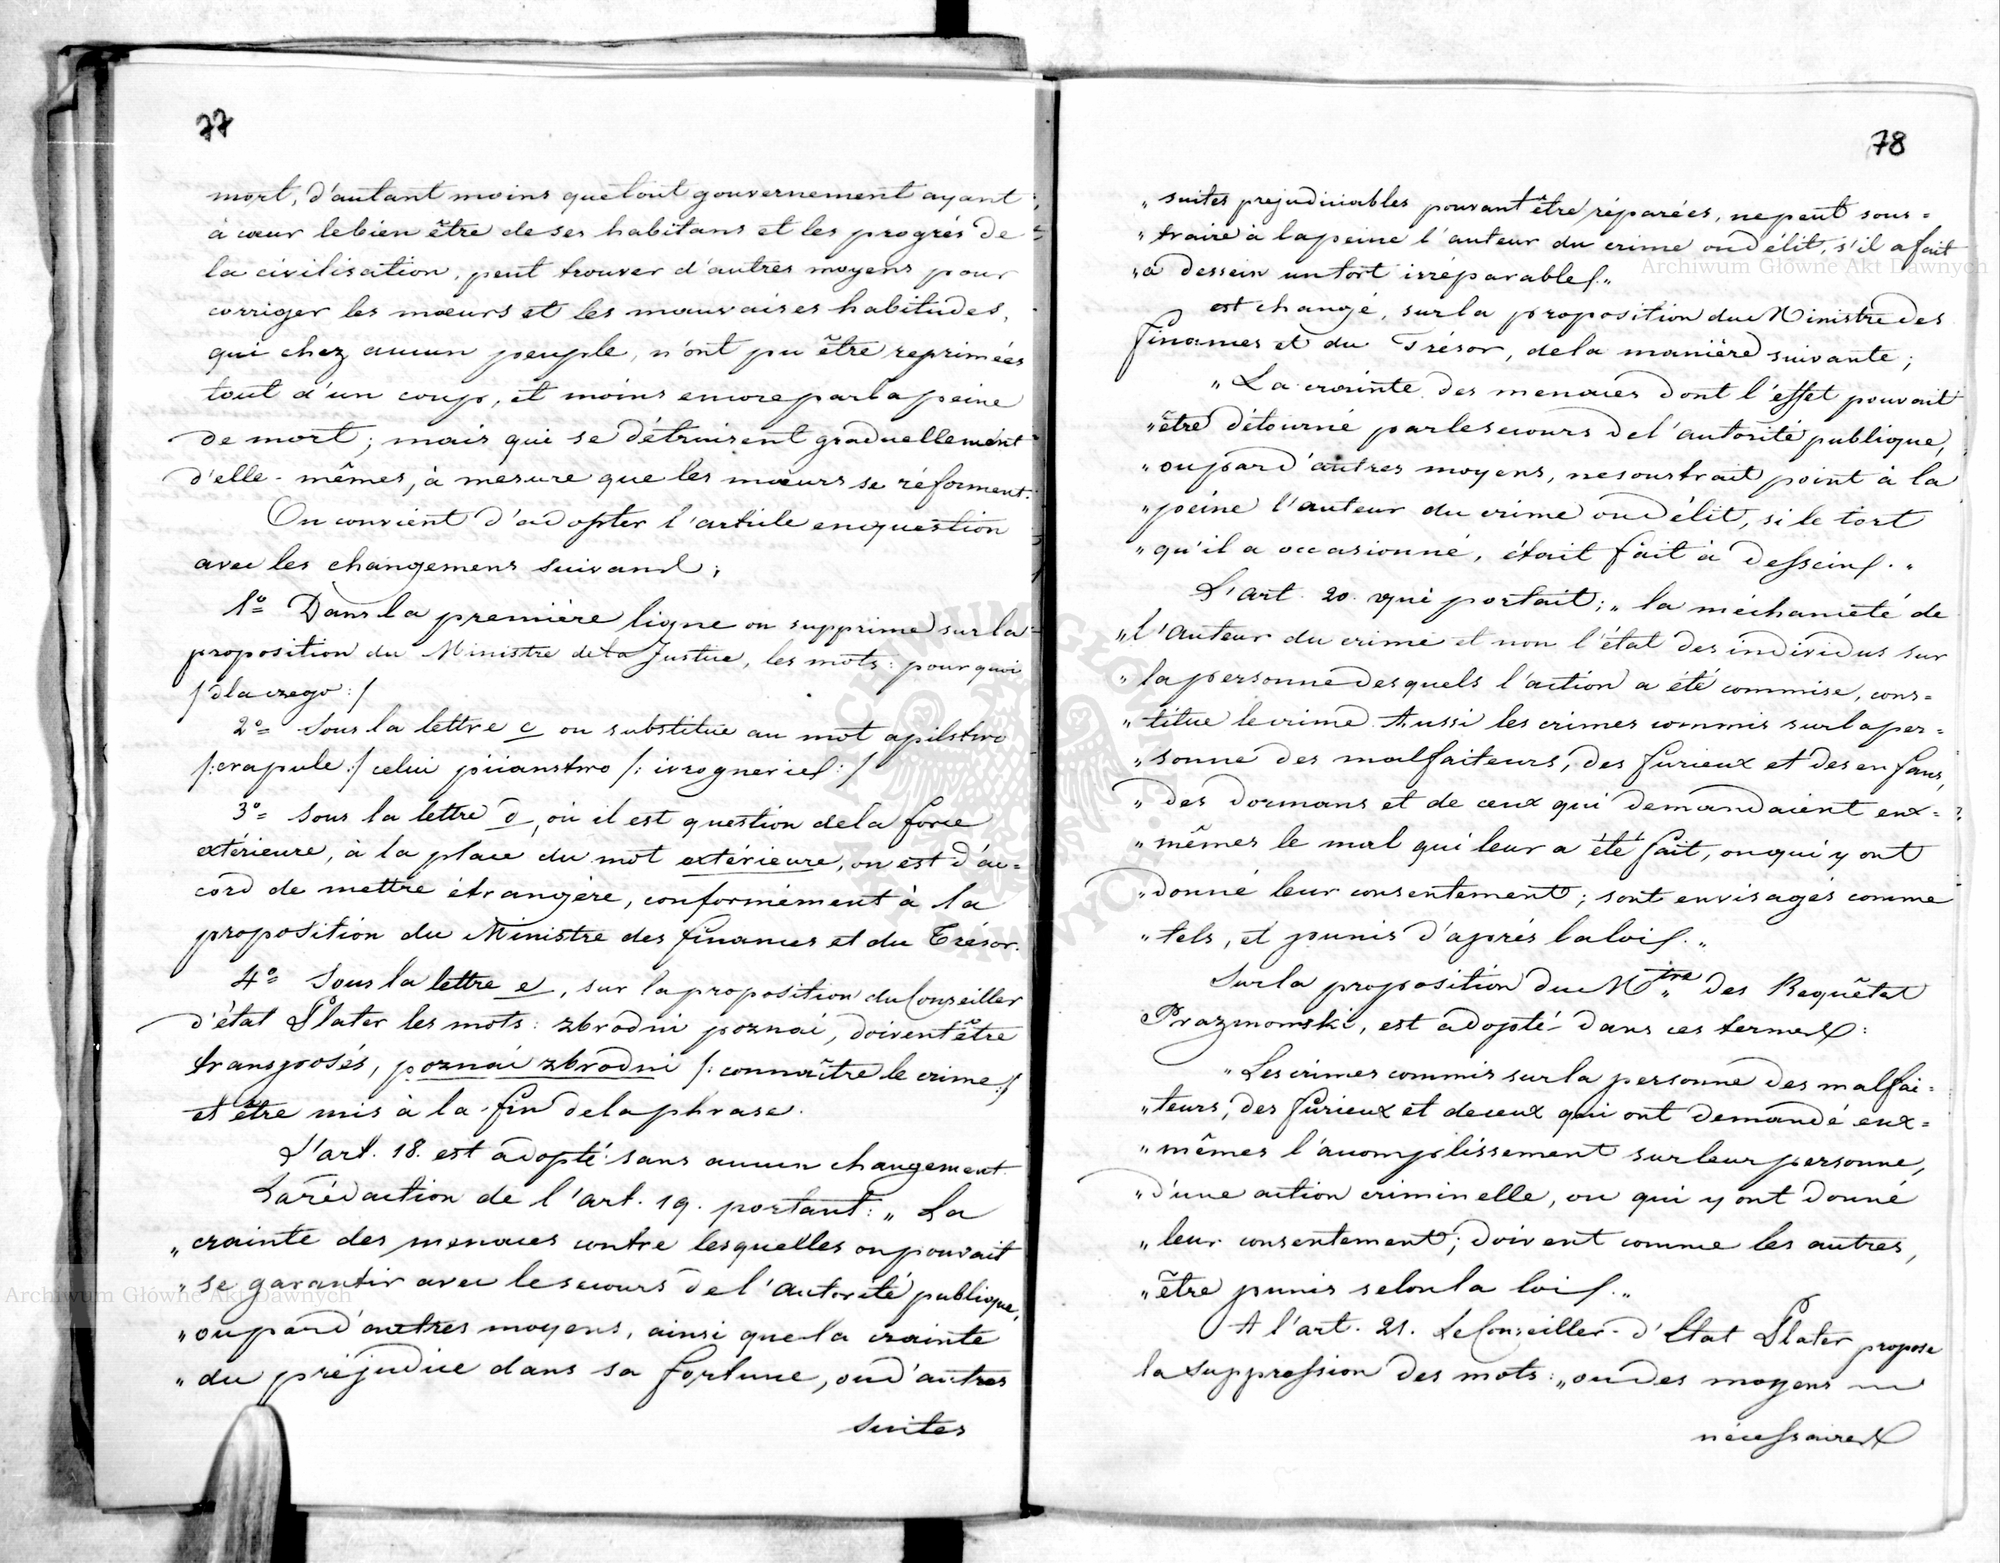 77
mort, d'autant moins que tout gouvernement ayant
à cœur le bien être de ses habitans et les progrès de
la civilisation, peut trouver d'autres moyens pour
corriger les mœurs et les mauvaises habitudes,
qui chez aucun peuple, n'ont pu être reprimées
tout d'un coup, et moins encore par la peine
de mort; mais qui se détruisent graduellement
d'elle-mêmes, à mesure que les mœurs se réforment.
On convient d'adopter l'article en question
avec les changemens suivans;
1º Dans la première ligne on supprime sur la
proposition du Ministre de la Justice, les mots: pourquoi
/ dlaczego :/
2º Sous la lettre c on substitue au mot opilstwo
/: crapule :/ celui pijanstwo /: ivrognerie :/
3º Sous la lettre d, où il est question de la force
extérieure, à la place du mot extérieure, on est d'ac=
cord de mettre étrangère, conformément à la
proposition du Ministre des finances et du Trésor.
4º Sous la lettre e, sur la proposition du Conseiller
d'état Plater les mots: zbrodni poznai, doivent être
transposés, poznai zbrodni /: connaître le crime :/
et être mis à la fin de la phrase.
L'art. 18. est adopté sans aucun changement.
La rédaction de l'art. 19. portant: „ La
„ crainte des menaces contre lesquelles on pouvait
„ se garantir avec le secours de l'autorité publique,
„ ou par d'autres moyens, ainsi que la crainte
„ du préjudice dans sa fortune, ou d'autres
suites
78
„ suites prejudiciables pouvant être réparées, ne peut sous=
„ traire à la peine l'auteur du crime ou délit, s'il a fait
„ à dessein un tort irréparable.„
est changé, sur la proposition du Ministre des
finances et du Trésor, de la manière suivante;
„ La crainte des menaces dont l'effet pouvait
„ être détourné par le secours de l'autorité publique,
„ ou par d'autres moyens, ne soustrait point à la
„ peine l'auteur du crime ou délit, si le tort
„ qu'il a occasionné, était fait à dessein. „
L'art. 20. qui portait; „ la méchanceté de
„ l'auteur du crime et non l'état des individus sur
„ la personne desquels l'action a été commise, cons=
„ titue le crime. Aussi les crimes commis sur la per=
„ sonne des malfaiteurs, des furieux et des enfans,
„ des dormans et de ceux qui demandaient eux=
„ mêmes le mal qui leur a été fait, ou qui y ont
„ donné leur consentement; sont envisagés comme
„ tels, et punis d'après la loi. „
Sur la proposition du Mtre des Requêtes
Prazmowski, est adopté dans ces termes:
„ Les crimes commis sur la personne des malfai=
„ teurs, des furieux et de ceux qui ont demandé eux=
„ mêmes l'accomplissement sur leur personne,
„ d'une action criminelle, ou qui y ont donné
„ leur consentement; doivent comme les autres,
„ être punis selon la loi. „
A l'art. 21. Le Conseiller d'Etat Plater propose
la suppression des mots: „ ou des moyens
nécessaires
Archiwum Główne Akt Dawnych
Archiwum Główne Akt Dawnych
ARCHIWUM GŁÓWNE AKT DAWNYCH